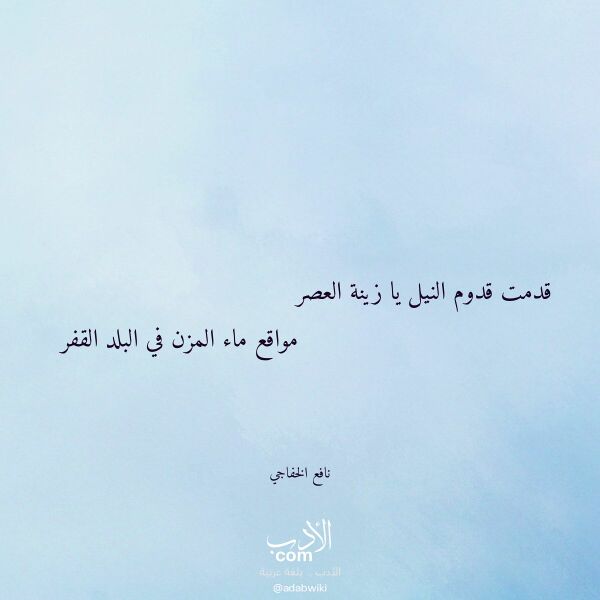 قدمت قدوم النيل يا زينة العصر
مواقع ماء المزن في البلد القفر
نافع الخفاجي
الأدب
com
الأدب .. بلغة عربية
@adabwiki